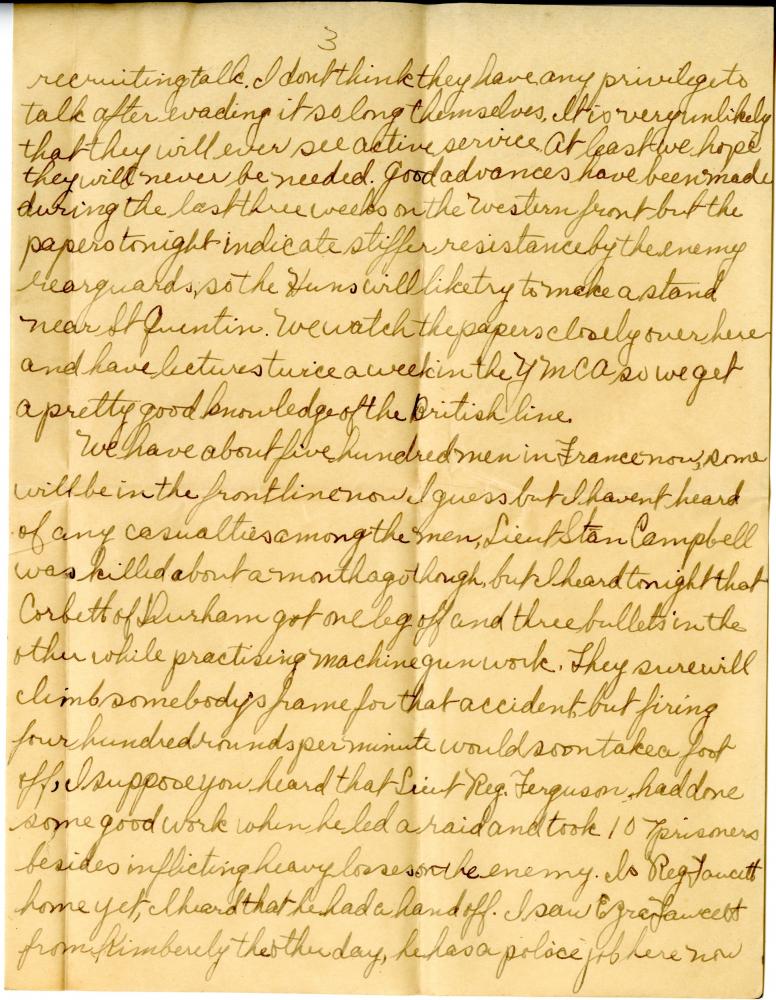 3
recruiting talk. I dont think they have any privilege to
talk after evading it so long themselves. It is very unlikely
that they will ever see active service. At least we hope
they will never be needed. Good advances have been made
during the last three weeks on the western front but the
papers tonight indicate stiffer resistance by the enemy
rearguards, so the Huns will like try to make a stand
near St Quentin. We watch the papers closely over here
and have lectures twice a week in the YMCA so we get
a pretty good knowledge of the British line.
We have about five hundred men in France now, some
will be in the front line now I guess but I havent heard
of any casualties among the men, Lieut Stan Campbell
was killed about a month ago though, but I heard tonight that
Corbett of Durham got one leg off and three bullets in the
other while practising machine gun work. They sure will
climb somebody's frame for that accident, but firing
four hundred rounds per minute would soon take a foot
off, I suppose you heard that Lieut Reg. Ferguson, had done
some good work when he led a raid and took 10 prisoners
besides inflicting heavy losses on the enemy. Is Reg Fawcett
home yet, I heard that he had a hand off. I saw Ezra Fawcett
from Kimberely the other day, he has a police job here now